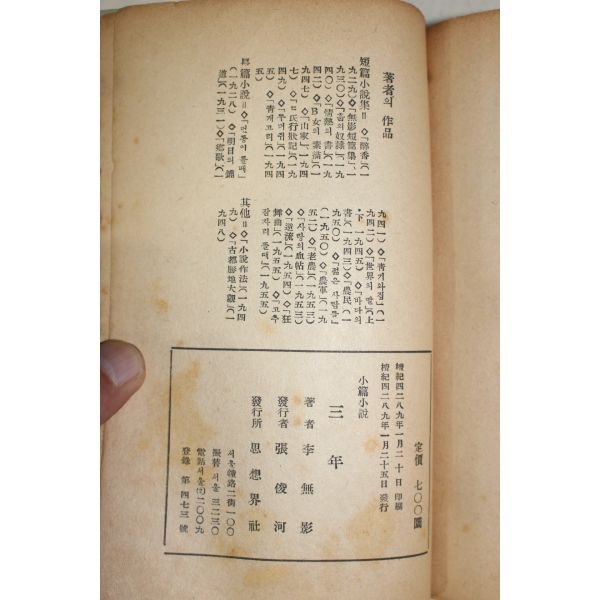 著者의 作品
短篇小說集＝◇「醉香」(一
九二九)◇「無影短篇集」(一
九三〇)◇「흙의奴隷」(一九
四〇)◇「情熱의 書」(一九
四二)◇「B女의 素描」(一
九四七)◇「山家」(一九四
七)◇「ㄷ氏行狀記」(一九
四九)◇(一九五
五)◇「青개고리」(一九五
五)
長篇小說＝◇「먼동이틀때」
(一九二八)◇「明日의 鋪
道」(一九三一)◇「鄕歌」(一
九四一)◇「青기와집」(一
九四二)◇「世界의 딸」(上
下 一九四五)◇「바다의
書」(一九四三)◇「農民」(一
九五〇)◇「젊은 사람들」
(一九五〇)◇「農軍」(一九
五二)◇「老農」(一九五三)
◇「사랑의血帖」(一九五三)
◇「逆流」(一九五四)◇「狂
舞曲」(一九五五)◇「고추
잠자리 뜰때」(一九五五)
其他＝◇「小說作法」(一九四
九)◇「古都勝地大觀」(一
九四八)
檀紀四二八九年一月二十日 印刷
檀紀四二八九年一月二十五日 發行
定價 七〇〇圜
小篇小說
三年
著者 李無影
發行者 張俊河
發行所 思想界社
서울鐘路二街一〇〇
振替서울 三二三〇
電話서울(2)二〇〇九
登錄 第四七三號